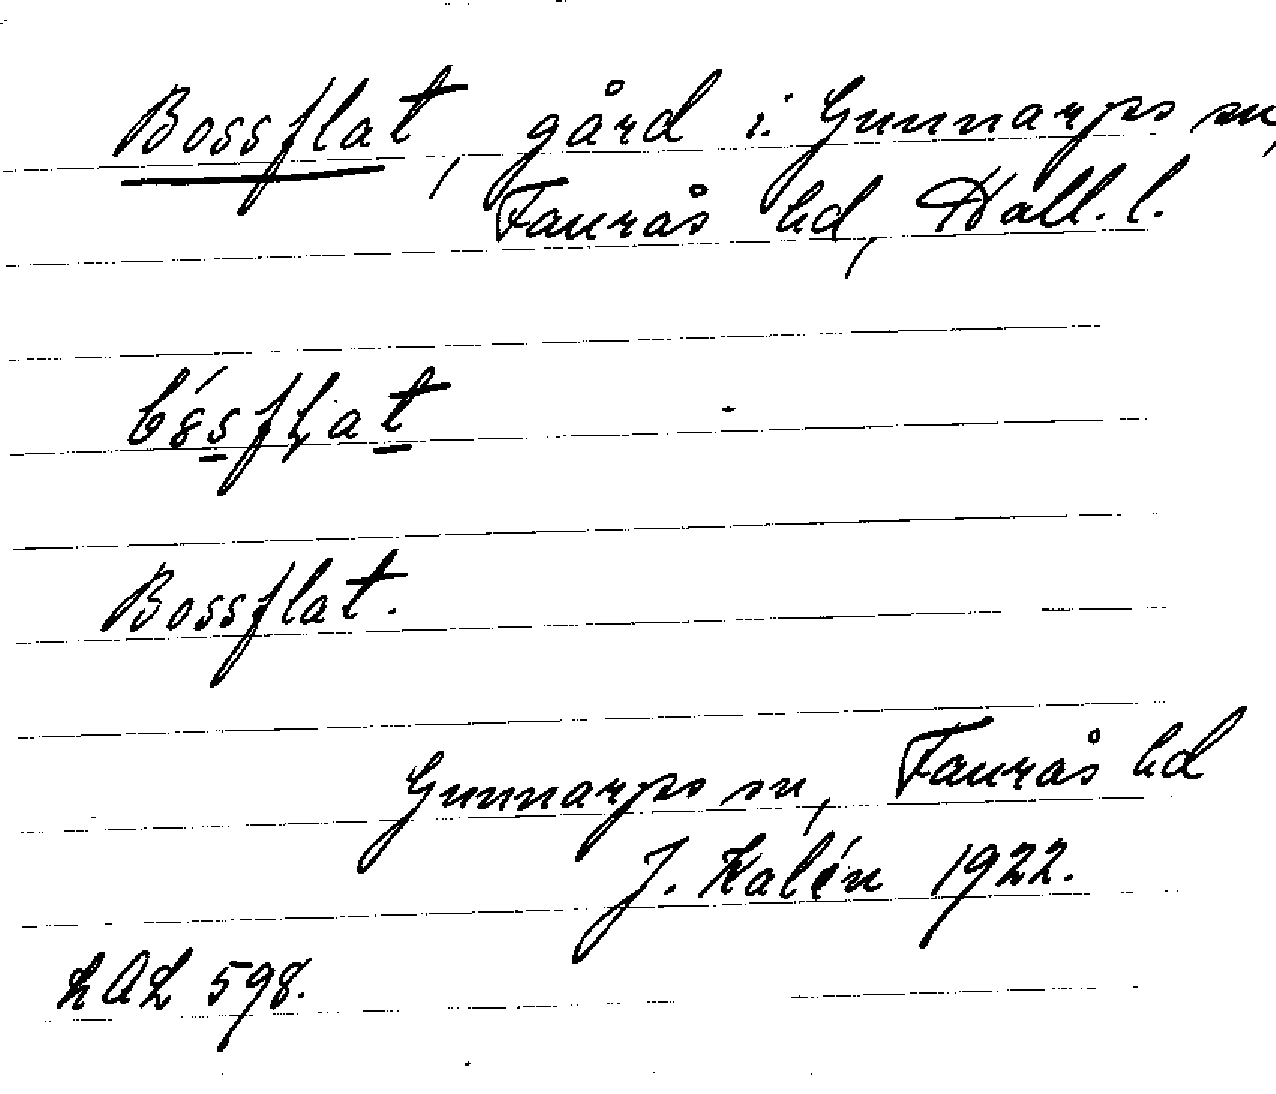 Bossflat, gård i Gunnarps sn,
Faurås hd, Hall. l.
Bossflat.
Gunnarps sn, Faurås hd
J. Kalén 1922.
LAL 598.